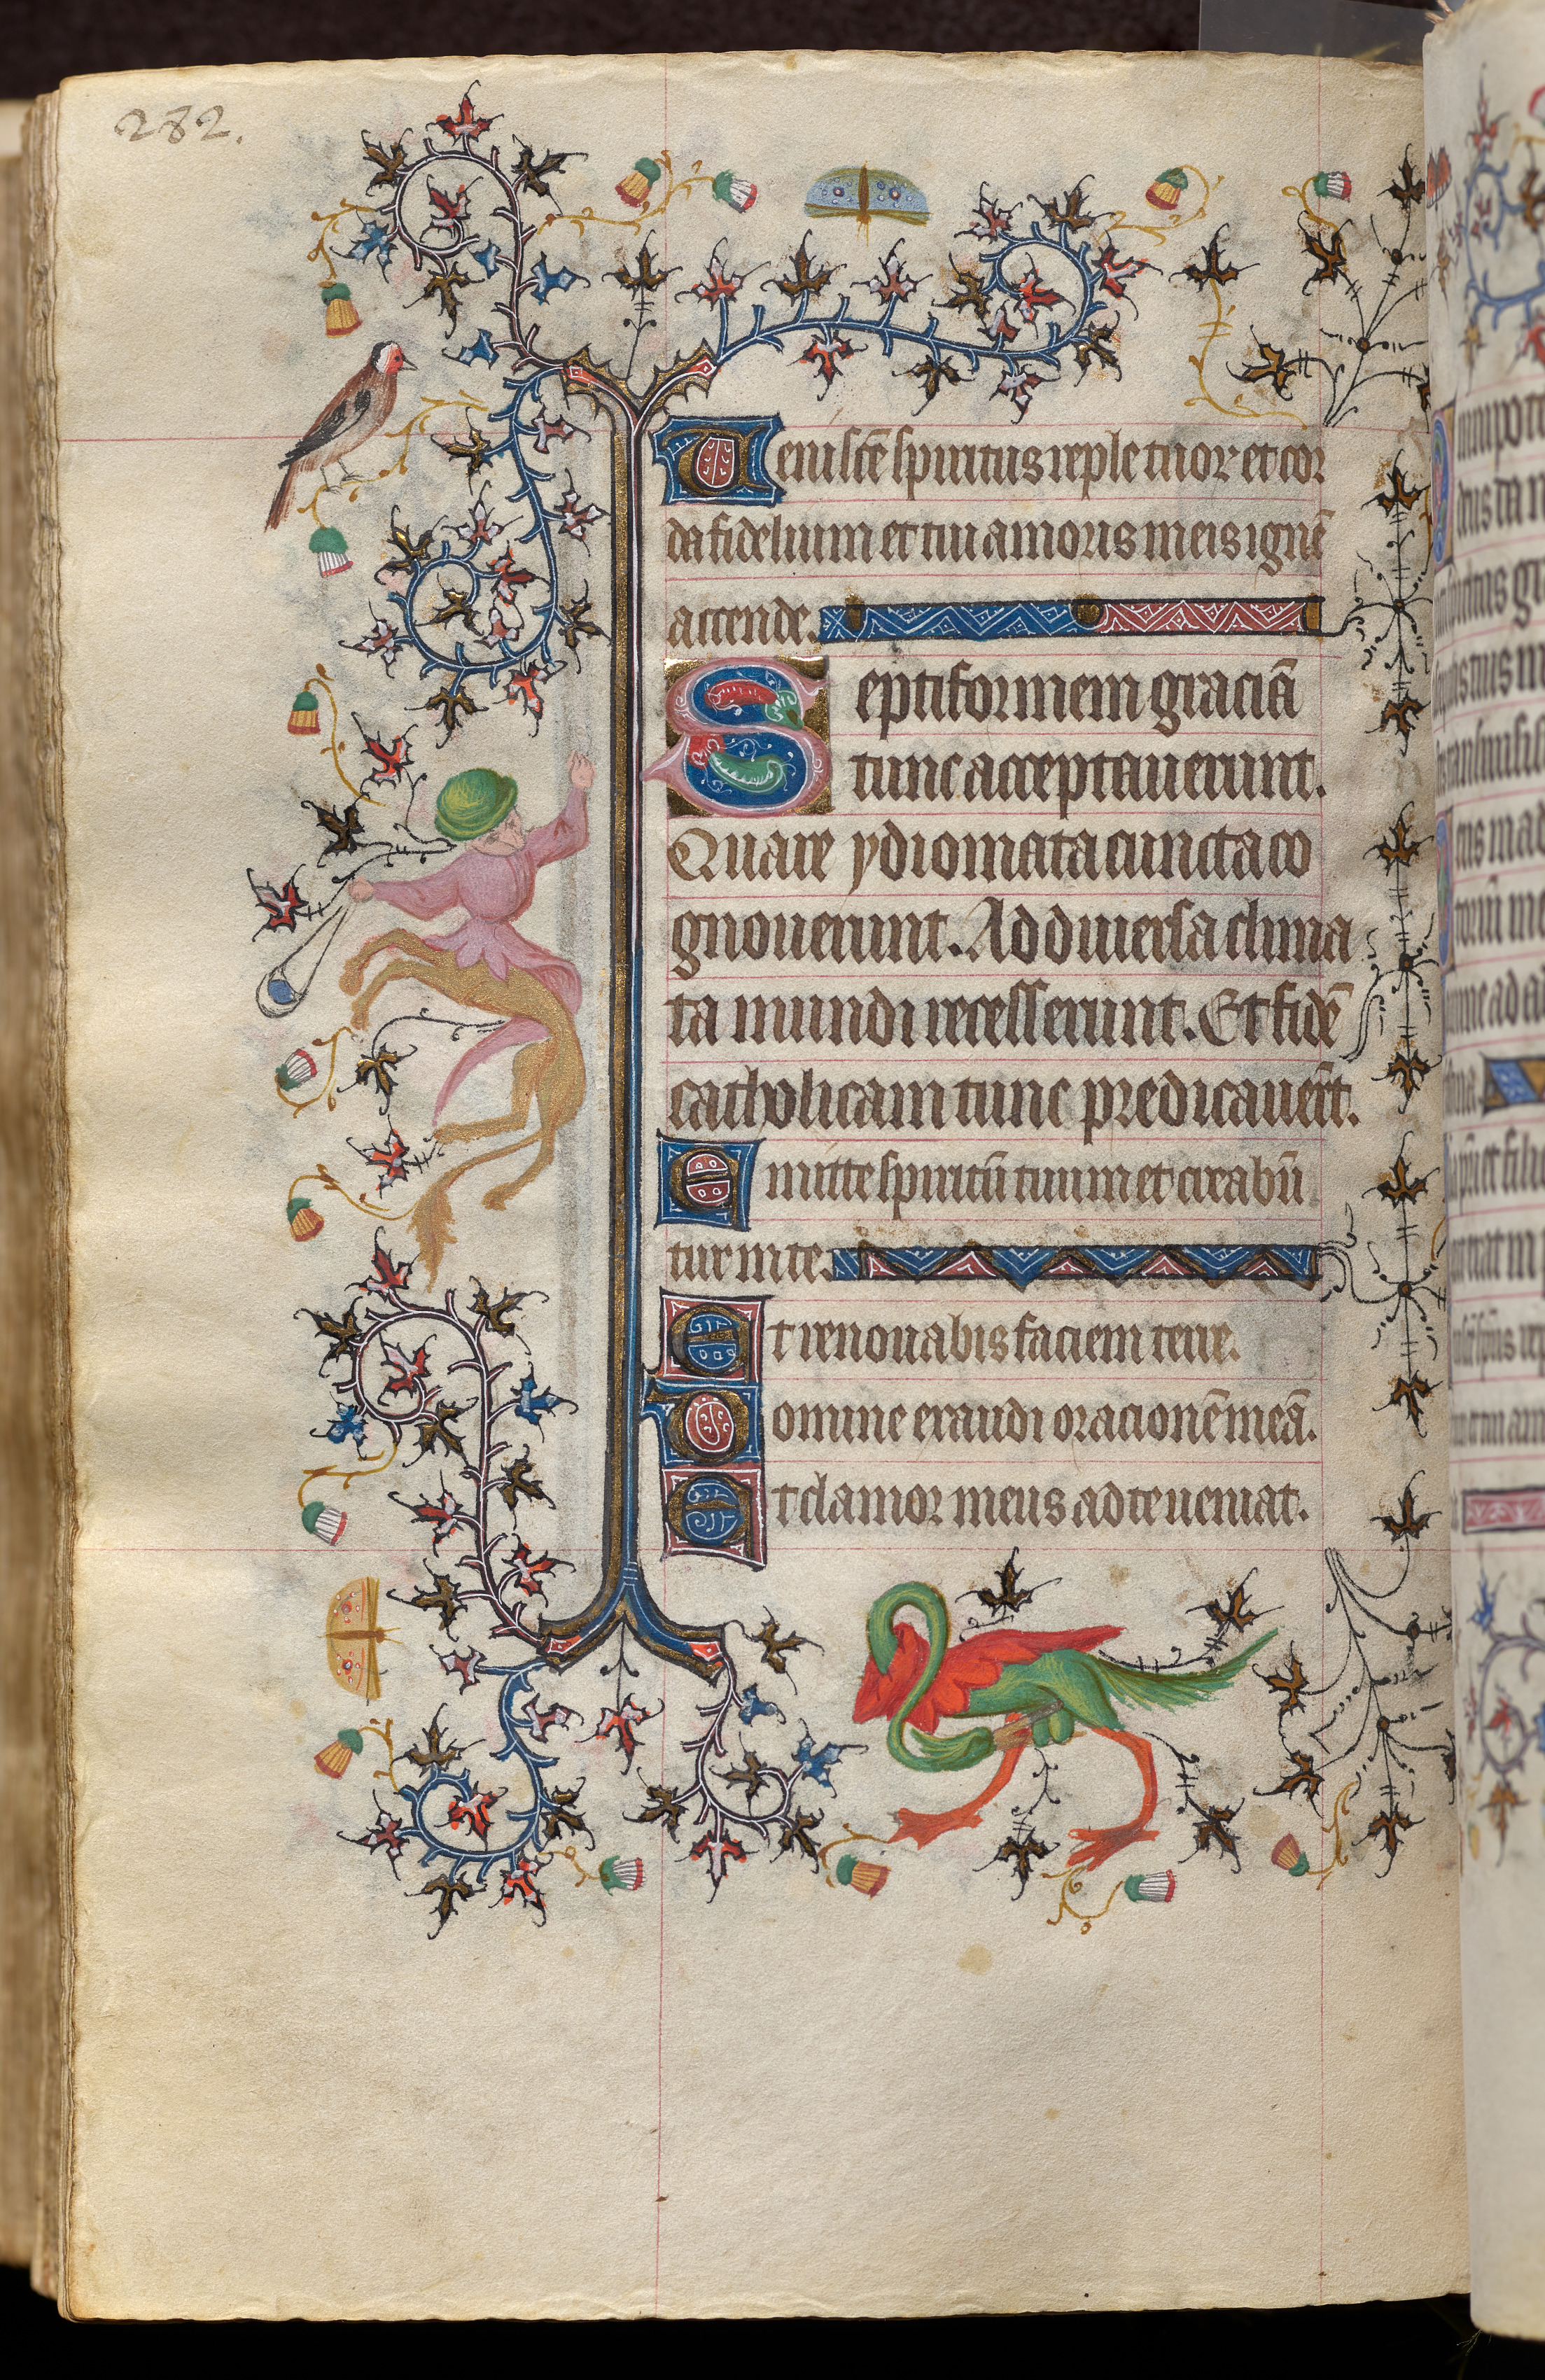 282.
Ueni sc̄e spiritus reple tuor et cor
da fidelium et tui amoris in eis ignē
accende.
Septiformem graciā
tunc acceptauerunt.
Quare ydiomata cuncta co
gnouerunt. Ad diuersa clima
ta mundi recesserunt. Et fidē
catholicam tunc predicauer̄t.
Emitte spiritū tuum et creabū
tur in te.
Et renouabis faciem terre.
Domine exaudi oracionē meā.
Et clamor meus ad te ueniat.